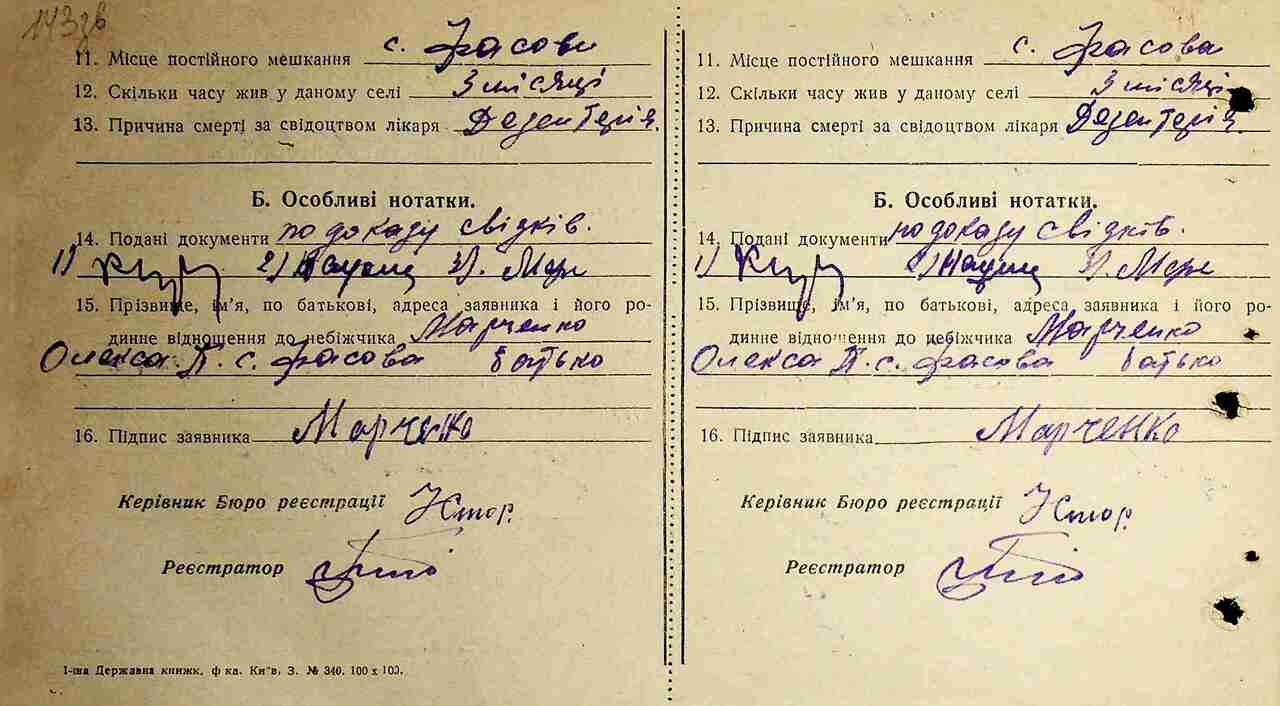 143зв
с. Фасова
11. Місце постійного мешкання
12. Скільки часу жив у даному селі 3 місяці
13. Причина смерті за свідоцтвом лікаря Дезентерія.
Б. Особливі нотатки.
14. Подані документи по докаду свідків.
1) 2) 3). Мар
15. Прізвище, ім'я, по батькові, адреса заявника і його ро-
динне відношення до небіжчика Марченко
Олекса П. с. Фасова батько
16. Підпис заявника Марченко
Керівник Бюро реєстрації
Реєстратор
І-ша Державна книжк. ф-ка. Київ, З. № 340. 100 х 100.
с. Фасова
11. Місце постійного мешкання
12. Скільки часу жив у даному селі 3 місяці
13. Причина смерті за свідоцтвом лікаря Дезентерія.
Б. Особливі нотатки.
14. Подані документи по докаду свідків.
1) 2) 3). Мар
15. Прізвище, ім'я, по батькові, адреса заявника і його ро-
динне відношення до небіжчика Марченко
Олекса П. с. Фасова батько
16. Підпис заявника Марченко
Керівник Бюро реєстрації
Реєстратор